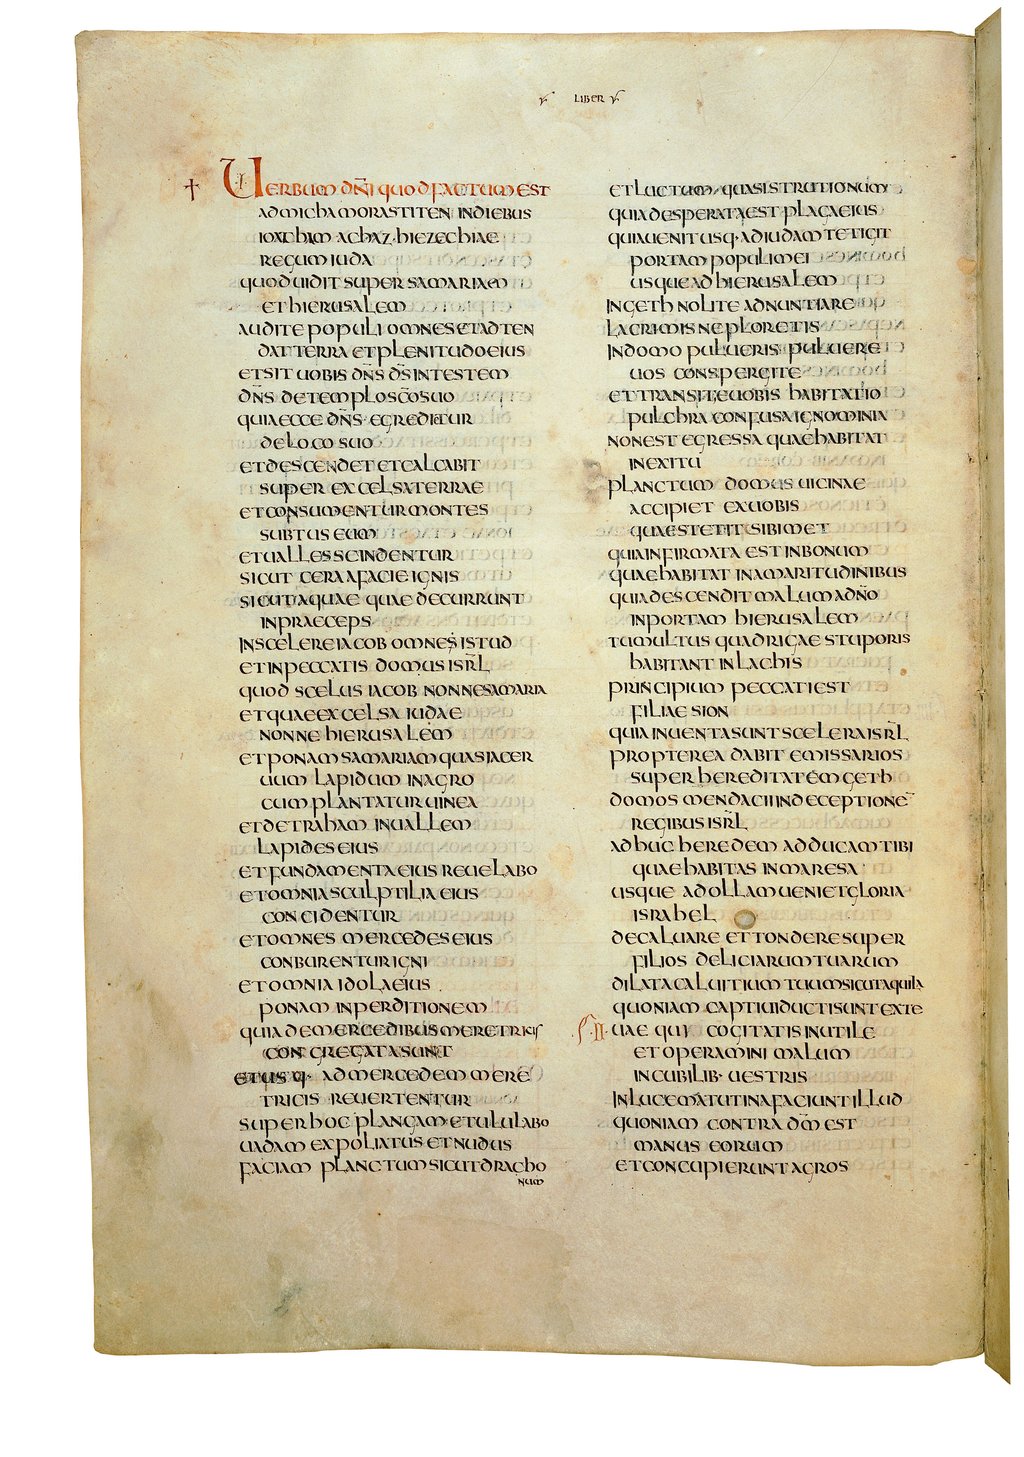 LIBER
UERBUM DN̄I QUOD FACTUM EST
AD MICHAM ORASTITEN IN DIEBUS
IOATHIM ACHAZ · HIEZECHIAE
REGUM IUDA
QUOD UIDIT SUPER SAMARIAM
ET HIERUSALEM
AUDITE POPULI OMNES ET ADTEN
DAT TERRA ET PLENITUDO EIUS
ET SIT UOBIS DN̄S D̄S IN TESTEM
DN̄S DE TEMPLO SCŌ SUO
QUIA ECCE DN̄S · EGREDITUR
DE LOCO SUO
ET DESCENDET ET CALCABIT
SUPER EXCELSA TERRAE
ET CONSUMENTUR MONTES
SUBTUS EUM
ET UALLES SCINDENTUR
SICUT CERA A FACIE IGNIS
SICUT AQUAE QUAE DECURRUNT
IN PRAECEPS
IN SCELERE IACOB OMNE ISTUD
ET IN PECCATIS DOMUS ISRL̄
QUOD SCELUS IACOB NONNE SAMARIA
ET QUAE EXCELSA IUDAE
NONNE HIERUSALEM
ET PONAM SAMARIAM QUASI ACER
UUM LAPIDUM IN AGRO
CUM PLANTATUR UINEA
ET DETRAHAM IN UALLEM
LAPIDES EIUS
ET FUNDAMENTA EIUS REUELABO
ET OMNIA SCULPTILIA EIUS
CONCIDENTUR
ET OMNES MERCEDES EIUS
CONBURENTUR IGNI
ET OMNIA IDOLA EIUS
PONAM IN PERDITIONEM
QUIA DE MERCEDIBUS MERETRICIS
CONGREGATA SUNT
ET USQ · AD MERCEDEM MERE
TRICIS REUERTENTUR
SUPER HOC PLANGAM ET ULULABO
UADAM EXPOLIATUS ET NUDUS
FACIAM PLANCTUM SICUT DRACHO
NUM
ET LUCTUM QUASI STRUTIONUM
QUIA DESPERATA EST PLAGA EIUS
QUIA UENIT USQ · AD IUDAM TETIGIT
PORTAM POPULI MEI
USQUE AD HIERUSALEM
IN GETH NOLITE ADNUNTIARE
LACRIMIS NE PLORETIS
IN DOMO PULUERIS PULUERE
UOS CONSPERGITE
ET TRANSITE UOBIS HABITATIO
PULCHRA CONFUSA IGNOMINIA
NON EST EGRESSA QUAE HABITAT
IN EXITU
PLANCTUM DOMUS UICINAE
ACCIPIET EX UOBIS
QUAE STETIT SIBIMET
QUIA INFIRMATA EST IN BONUM
QUAE HABITAT IN AMARITUDINIBUS
QUIA DESCENDIT MALUM A DN̄O
IN PORTAM HIERUSALEM
TUMULTUS QUADRIGAE STUPORIS
HABITANT IN LACHIS
PRINCIPIUM PECCATI EST
FILIAE SION
QUIA INUENTA SUNT SCELERA ISRL̄
PROPTEREA DABIT EMISSARIOS
SUPER HEREDITATEM GETH
DOMOS MENDACII IN DECEPTIONE¯
REGIBUS ISRL̄
ADHUC HEREDEM ADDUCAM TIBI
QUAE HABITAS IN MARESA
USQUE AD OLLAM UENIET GLORIA
ISRAHEL
DECALUARE ET TONDERE SUPER
FILIOS DELICIARUM TUARUM
DILATA CALUITIUM TUUM SICUT AQUILA
QUONIAM CAPTIUI DUCTI SUNT EX TE
II UAE QUI COGITATIS INUTILE
ET OPERAMINI MALUM
IN CUBILIB · UESTRIS
IN LUCE MATUTINA FACIUNT ILLUD
QUONIAM CONTRA DM̄ EST
MANUS EORUM
ET CONCUPIERUNT AGROS